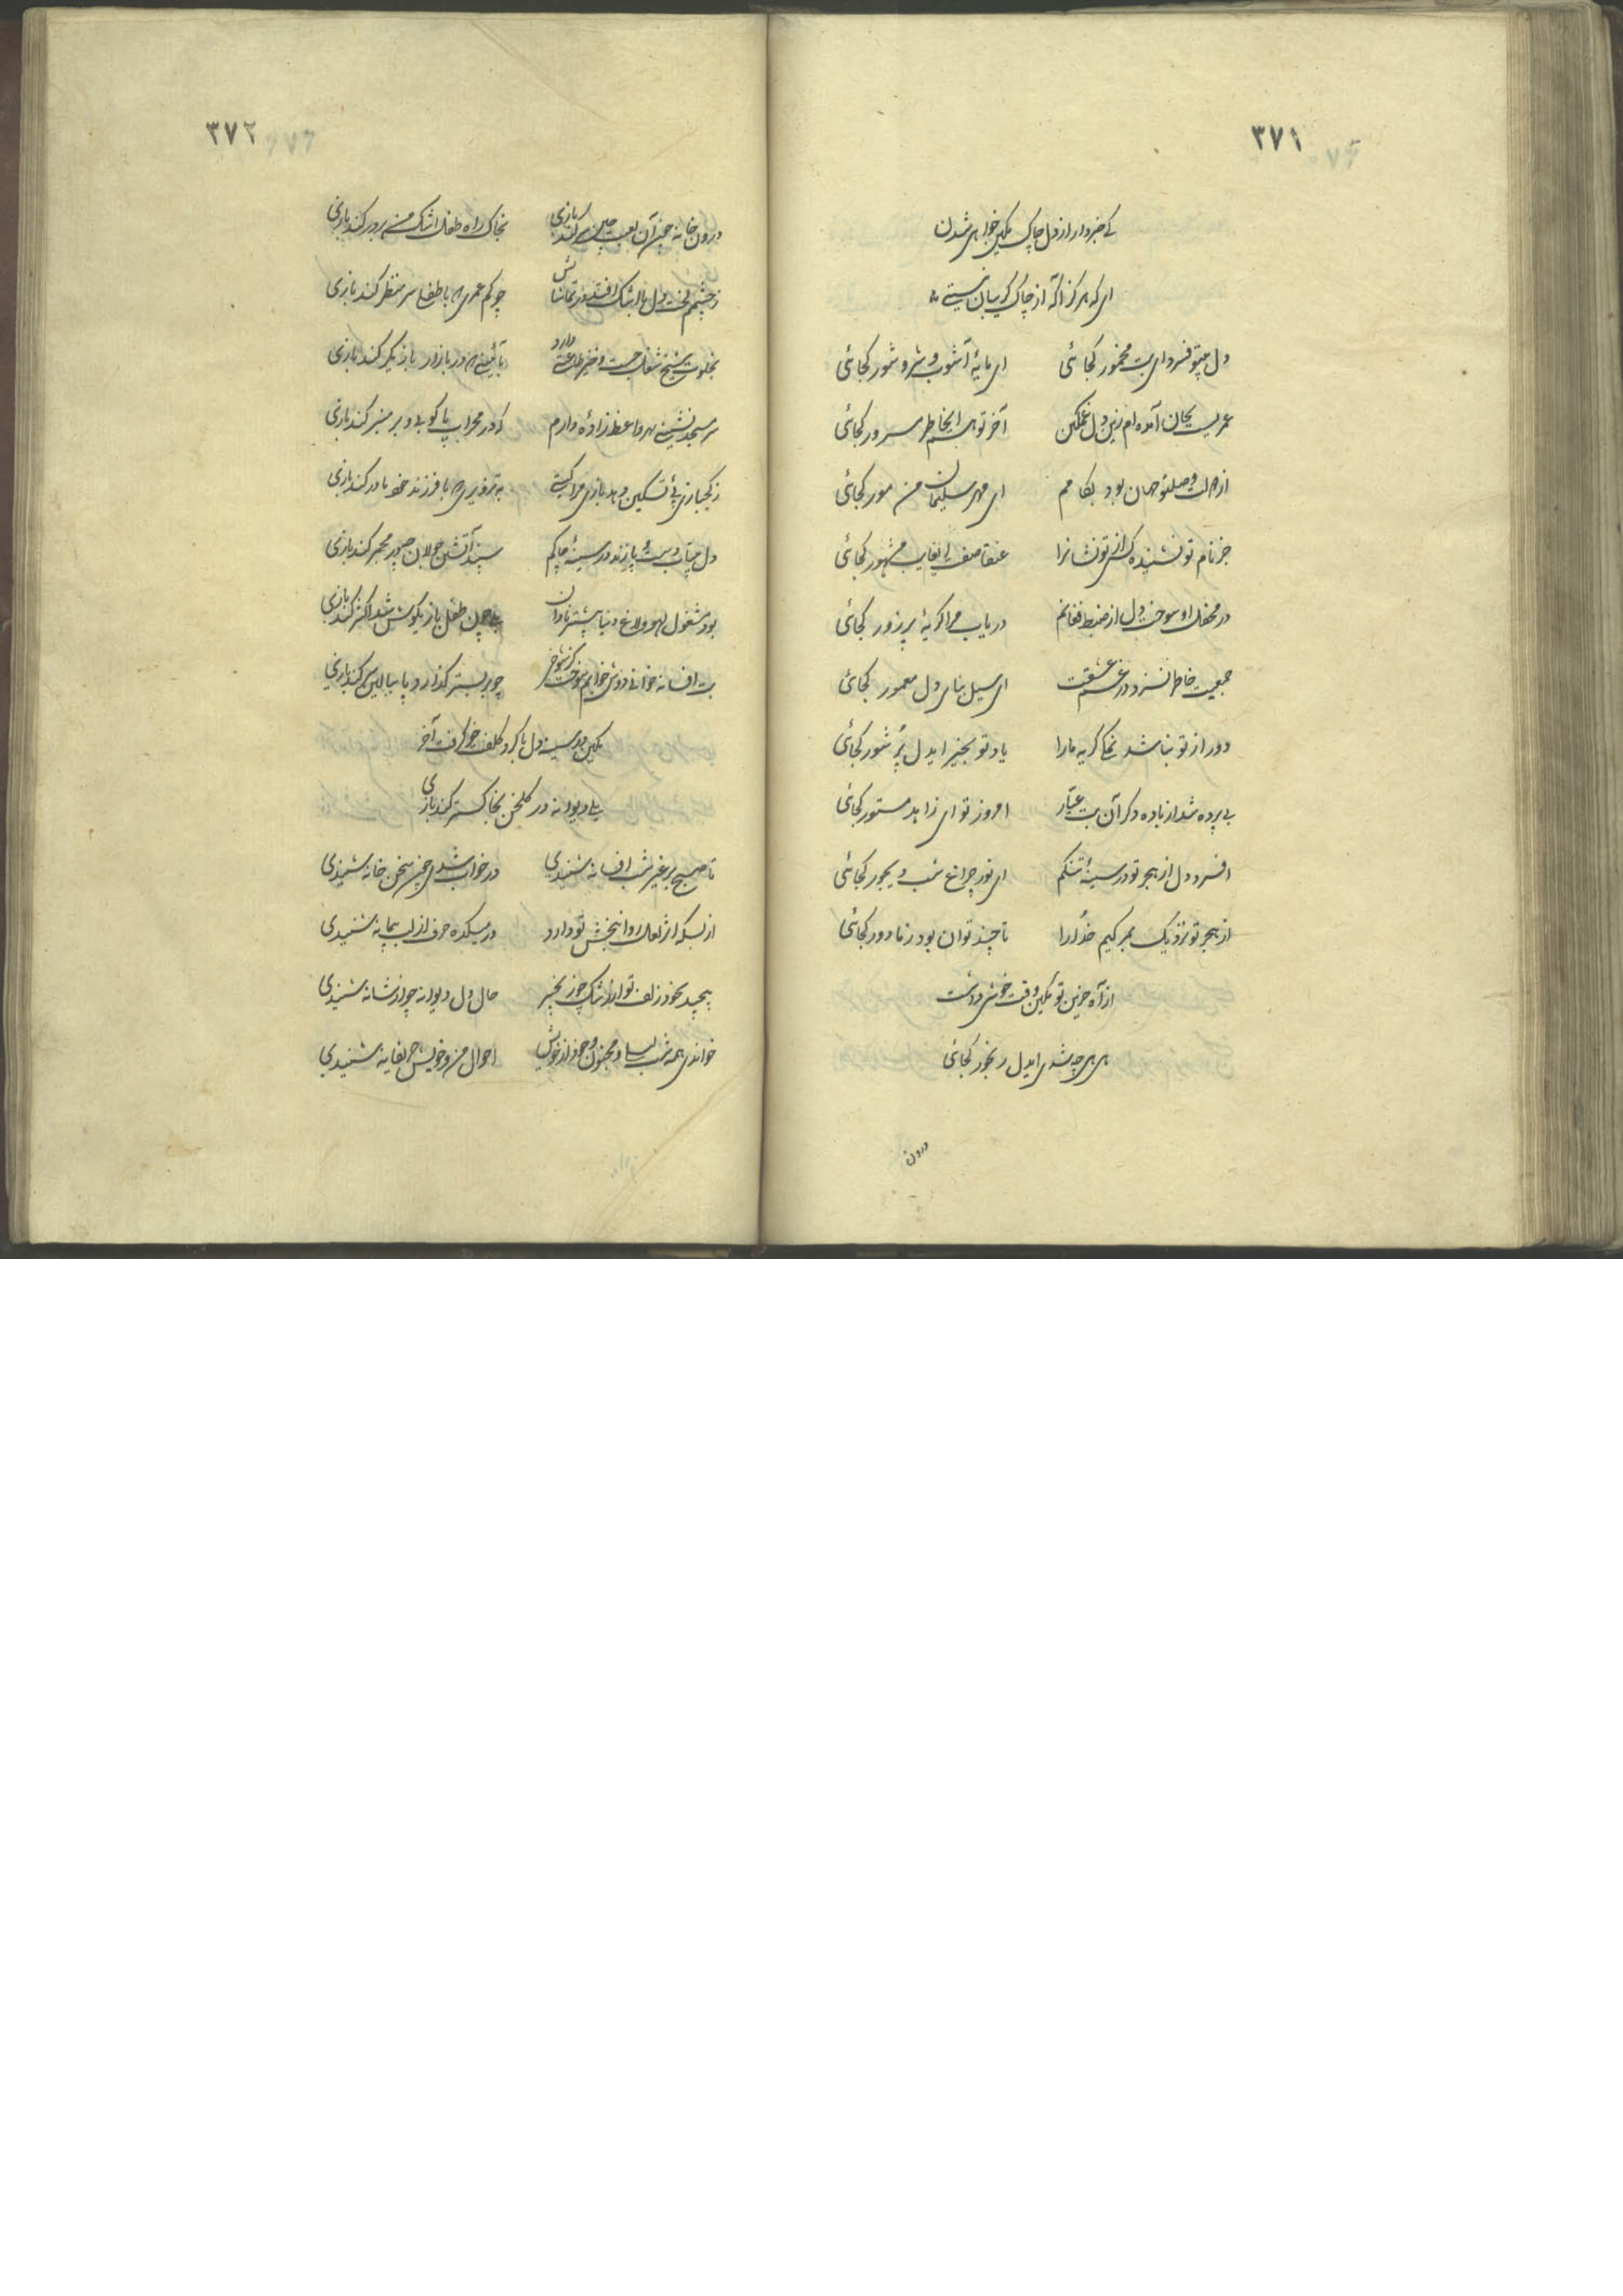 ۳۷۱
کی خبردار از دل چاک مکین خواهی شدن
ای که هرگز آگه از چاک گریبان نیستی
دل بیتو فسرد ای بت مخمور کجائی ای مایهٔ آشوب و شر و شور کجائی
عمریست بجان آمده‌ام زین دل غمگین آخر تو هم ایخاطر مسرور کجائی
جهان بود بکامم ای مهر سلیمان من مور کجائی
جز نام تو نشنیده کسی از تو نشانرا عنقا صفت ای غایب مشهور کجائی
در محفل او سوخت دل از ضبط فغانم دریاب مرا گریهٔ پر زور کجائی
جمعیت خاطر نسزد در غم عشقت ای سیل بنای دل معمور کجائی
دور از تو نباشد نمکی گریه ما را یاد تو بخیر ایدل پُر شور کجائی
بی پرده شد از باده دگر آن بت عیّار امروز تو ای زاهد مستور کجائی
افسرد دل از هجر تو در سینهٔ تنگم ای نور چراغ شب دیجور کجائی
از هجر تو نزدیک بمرگیم خدُا را تا چند توان بود ز ما دور کجائی
از آه حزین تو مکین وقت خوشی داشت
هی هی چه شدی ایدل رنجور کجائی
درون
۳۷۲
درون خانه چون آن لعبت چین میکند بازی بخاک راه طفل اشک من بر در کند بازی
ز چشمم لخت دل با اشک افتد چو کم عمری که با طفلا
بخلوت شیخ شغل جست و خیز طاعتی دارد بآئینی که در بازار بازیگر کند بازی
سر مسجد نشینی بهر واعظ زاده‌ٔ دارم که در محراب پا کوبد و بر منبر کند بازی
بتزویری که با فرزند خود مادر کند بازی
دل بیتاب دست و پا زند در سینهٔ چاکم سپند آتشین جولان چو در مجمر کند بازی
بود مشغول لهو و لاغ دنیا بیشتر نادان بلی چون طفل بازیگوش شد اکثر کند بازی
بت افسانه خوانی دوش خوابم سوخت کز شوخی چو بر بستر گذارد پا ببالین سر کند بازی
مکین در سینه دل با گرد کلفت خو گرفت آخر
بلی دیوانه در گلخن بخاکستر کند بازی
تا صبح بر غیر شب افسانه شنیدی در خواب شدی چون سخن خانه شنیدی
از بسکه اثر لعل روانبخش تو دارد در میکده حرف از لب پیمانه شنیدی
پیچید بخود زلف تو از رشک چو زنجیر حال دل دیوانه چو از شانه شنیدی
خواندی همه شب لیلی و مجنون و چو از خویش احوال من و خویش حریفانه شنیدی